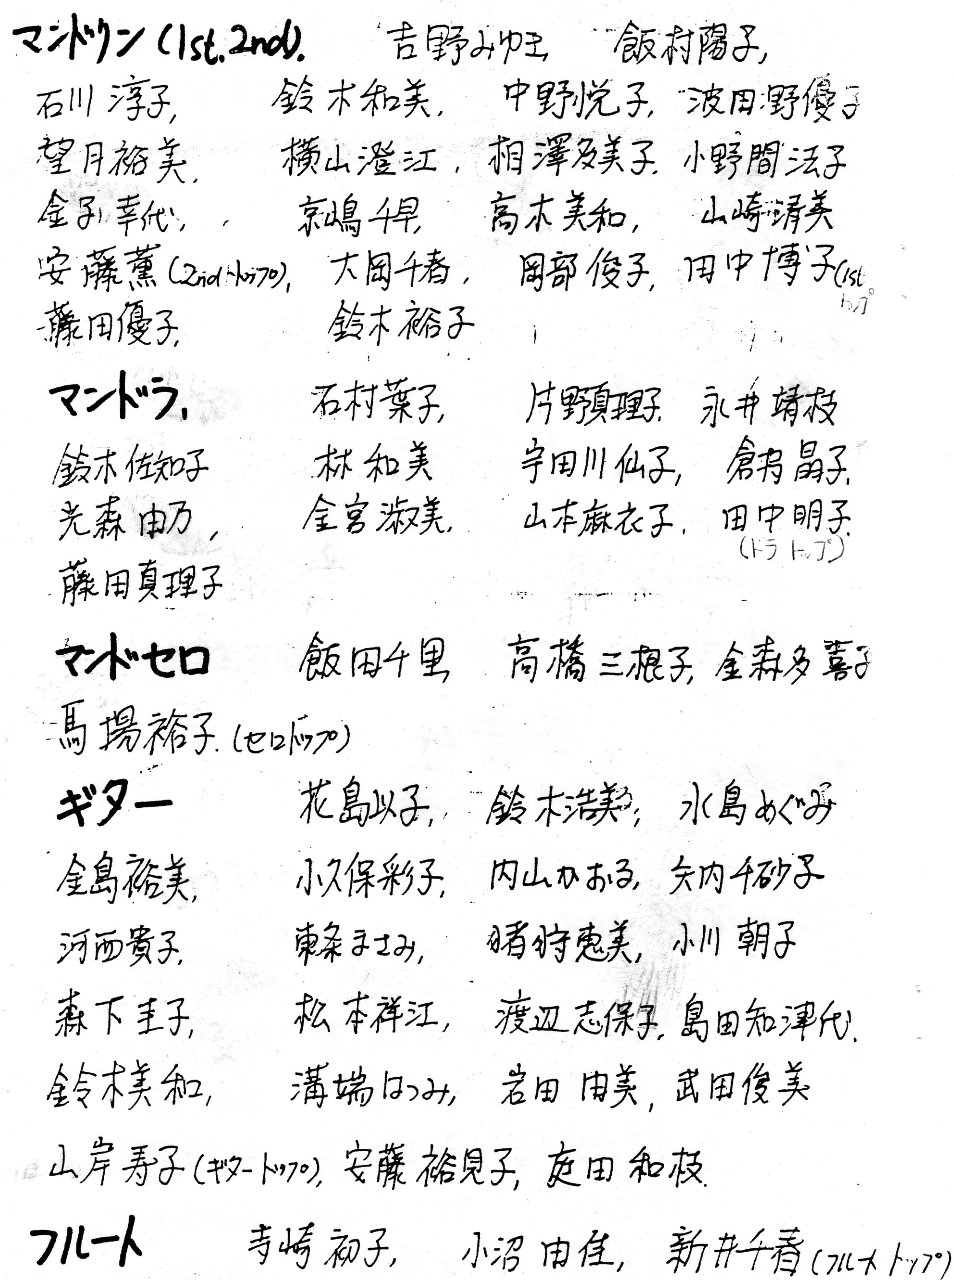 マンドリン(1st.2nd). 吉野みゆき 飯村陽子,
石川淳子, 鈴木和美, 中野悦子, 波田野優子
望月裕美, 横山澄江, 相澤友美子, 小野間法子
金子幸代, 京嶋千早, 高木美和, 山崎清美
安藤薫(2ndトップ), 大岡千春, 岡部俊子, 田中博子(1stトップ
藤田優子, 鈴木裕子
マンドラ, 石村葉子, 片野真理子, 永井靖枝
鈴木佐知子 林和美 宇田川仙子, 倉持晶子,
光森由乃, 金宮淑美, 山本麻衣子, 田中明子,
(ドラトップ)
藤田真理子
マンドセロ 飯田千里, 高橋三根子, 金森多喜子
馬場裕子.(セロトップ)
ギター 花島以子, 鈴木浩美, 水島めぐみ
金島裕美, 小久保彩子, 内山かおる, 矢内千砂子
河西貴子, 東条まさみ, 猪狩恵美, 小川朝子
森下圭子, 松本祥江, 渡辺志保子, 島田知津代.
鈴木美和, 溝端はつみ, 岩田由美, 武田俊美
山岸寿子(ギタートップ), 安藤裕見子, 庭田和枝.
フルート 寺崎初子, 小沼由佳, 新井千春(フルートトップ)